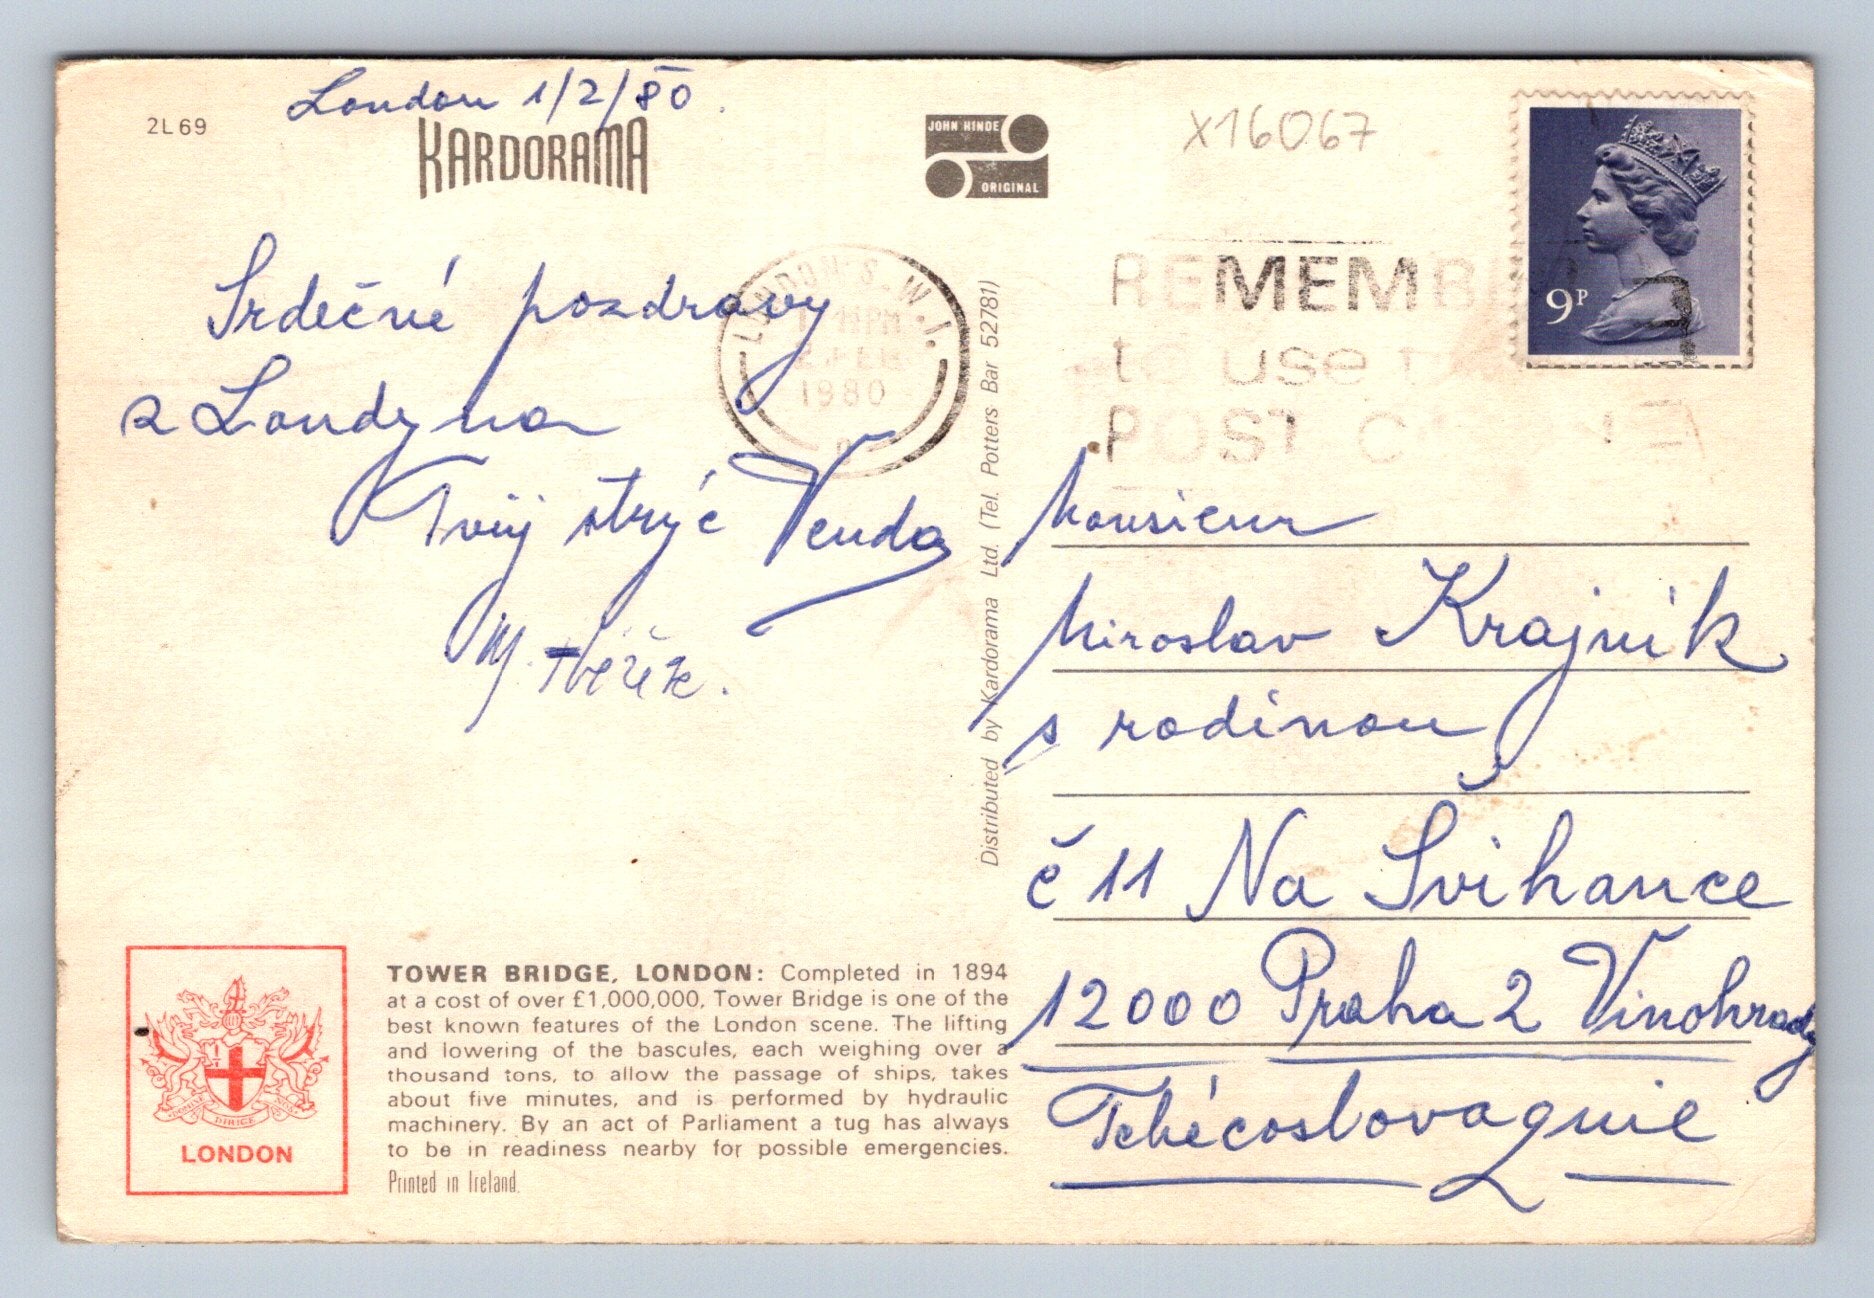 London 1/2/80.
2L69
KARDORAMA
JOHN HINDE
ORIGINAL
X16067
9P
LONDON S.W.1.
1980
REMEMB
to use
POST C
Srdečné pozdravy
z Londýna
Tvůj strýc Venda
M.
Distributed by Kardorama Ltd. (Tel. Potters Bar 52781)
Monsieur
Miroslav Krajník
s rodinou
č 11 Na Švihance
12000 Praha 2 Vinohrady
Tchécoslovaquie
DOMINE DIRIGE NOS
LONDON
TOWER BRIDGE, LONDON: Completed in 1894
at a cost of over £1,000,000, Tower Bridge is one of the
best known features of the London scene. The lifting
and lowering of the bascules, each weighing over a
thousand tons, to allow the passage of ships, takes
about five minutes, and is performed by hydraulic
machinery. By an act of Parliament a tug has always
to be in readiness nearby for possible emergencies.
Printed in Ireland.